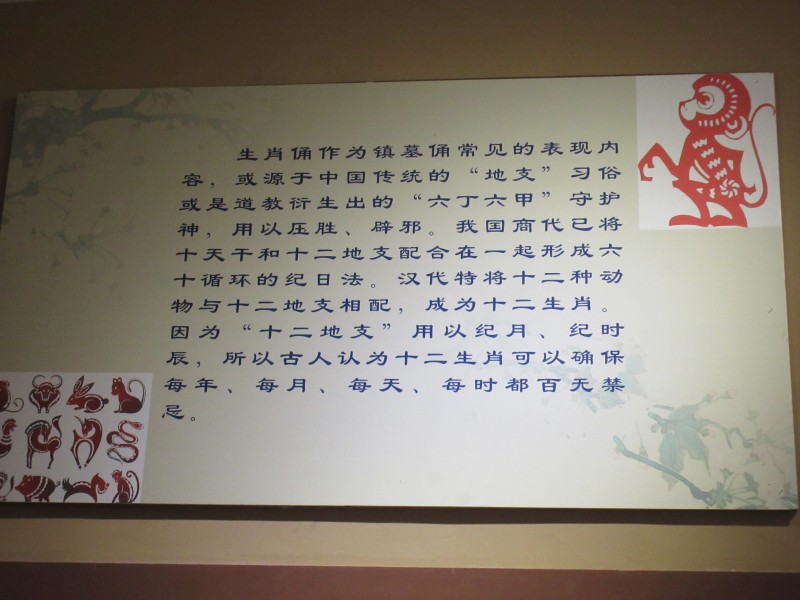 生肖俑作为镇墓俑常见的表现内
容，或源于中国传统的“地支”习俗
或是道教衍生出的“六丁六甲”守护
神，用以压胜、辟邪。我国商代已将
十天干和十二地支配合在一起形成六
十循环的纪日法。汉代特将十二种动
物与十二地支相配，成为十二生肖。
因为“十二地支”用以纪月、纪时
辰，所以古人认为十二生肖可以确保
每年、每月、每天、每时都百无禁
忌。